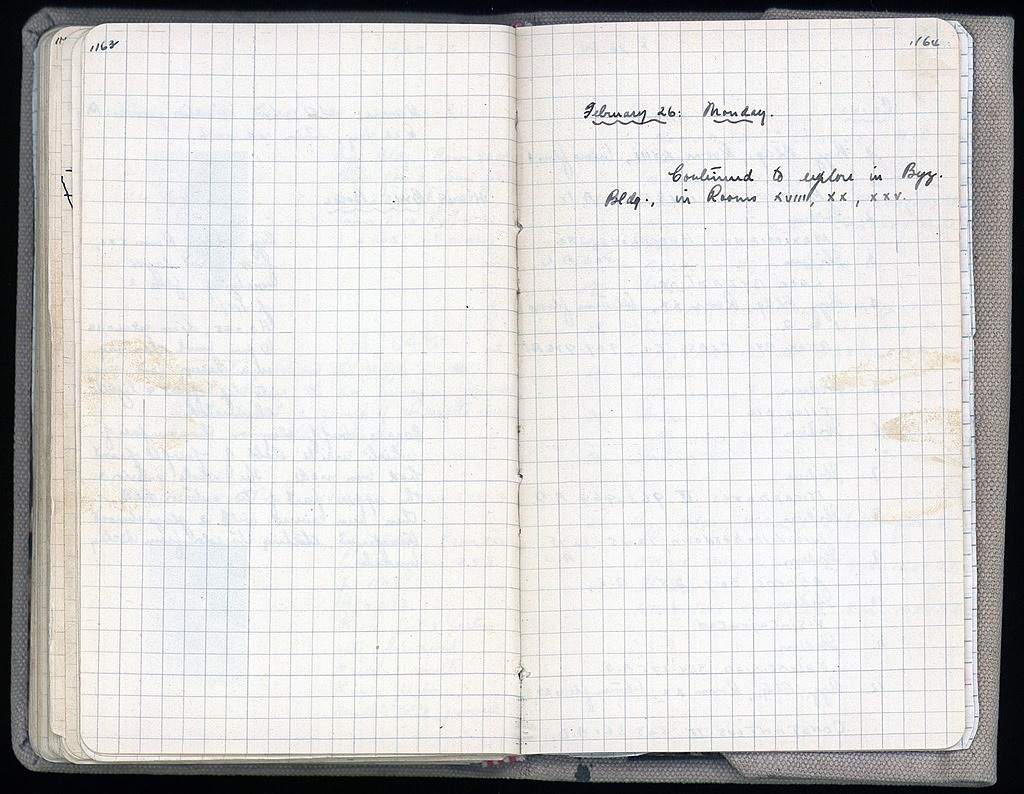 1163
1164
February 26: Monday.
Continued to explore in Byz.
Bldg., in Rooms XVIII, XX, XXV.